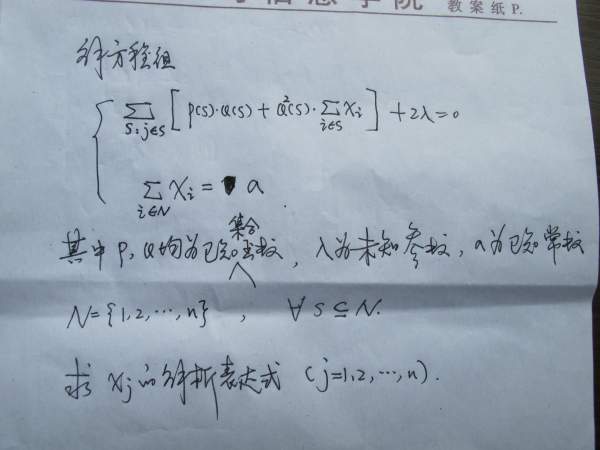 信息学院 教案纸P.
解方程组
∑_{S:j∈S} [P(S)·Q(S) + Q²(S)·∑_{i∈S} X_i] + 2λ = 0
∑_{i∈N} X_i = a.
其中P, Q均为已知集合函数, λ为未知参数, a为已知常数
N = {1, 2, ⋯, n}, ∀ S ⊆ N.
求 X_j 的解析表达式 (j=1, 2, ⋯, n).